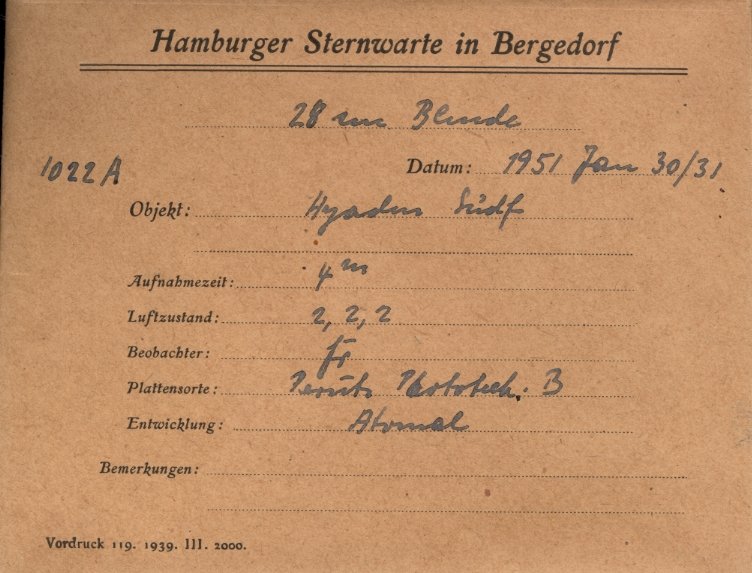 Hamburger Sternwarte in Bergedorf
28 cm Blende
1022 A Datum: 1951 Jan 30/31
Objekt: Hyaden Südf
Aufnahmezeit: 4 m
Luftzustand: 2, 2, 2
Beobachter:
Plattensorte: Perutz Phototech. B
Entwicklung: Atomal
Bemerkungen:
Vordruck 119. 1939. III. 2000.